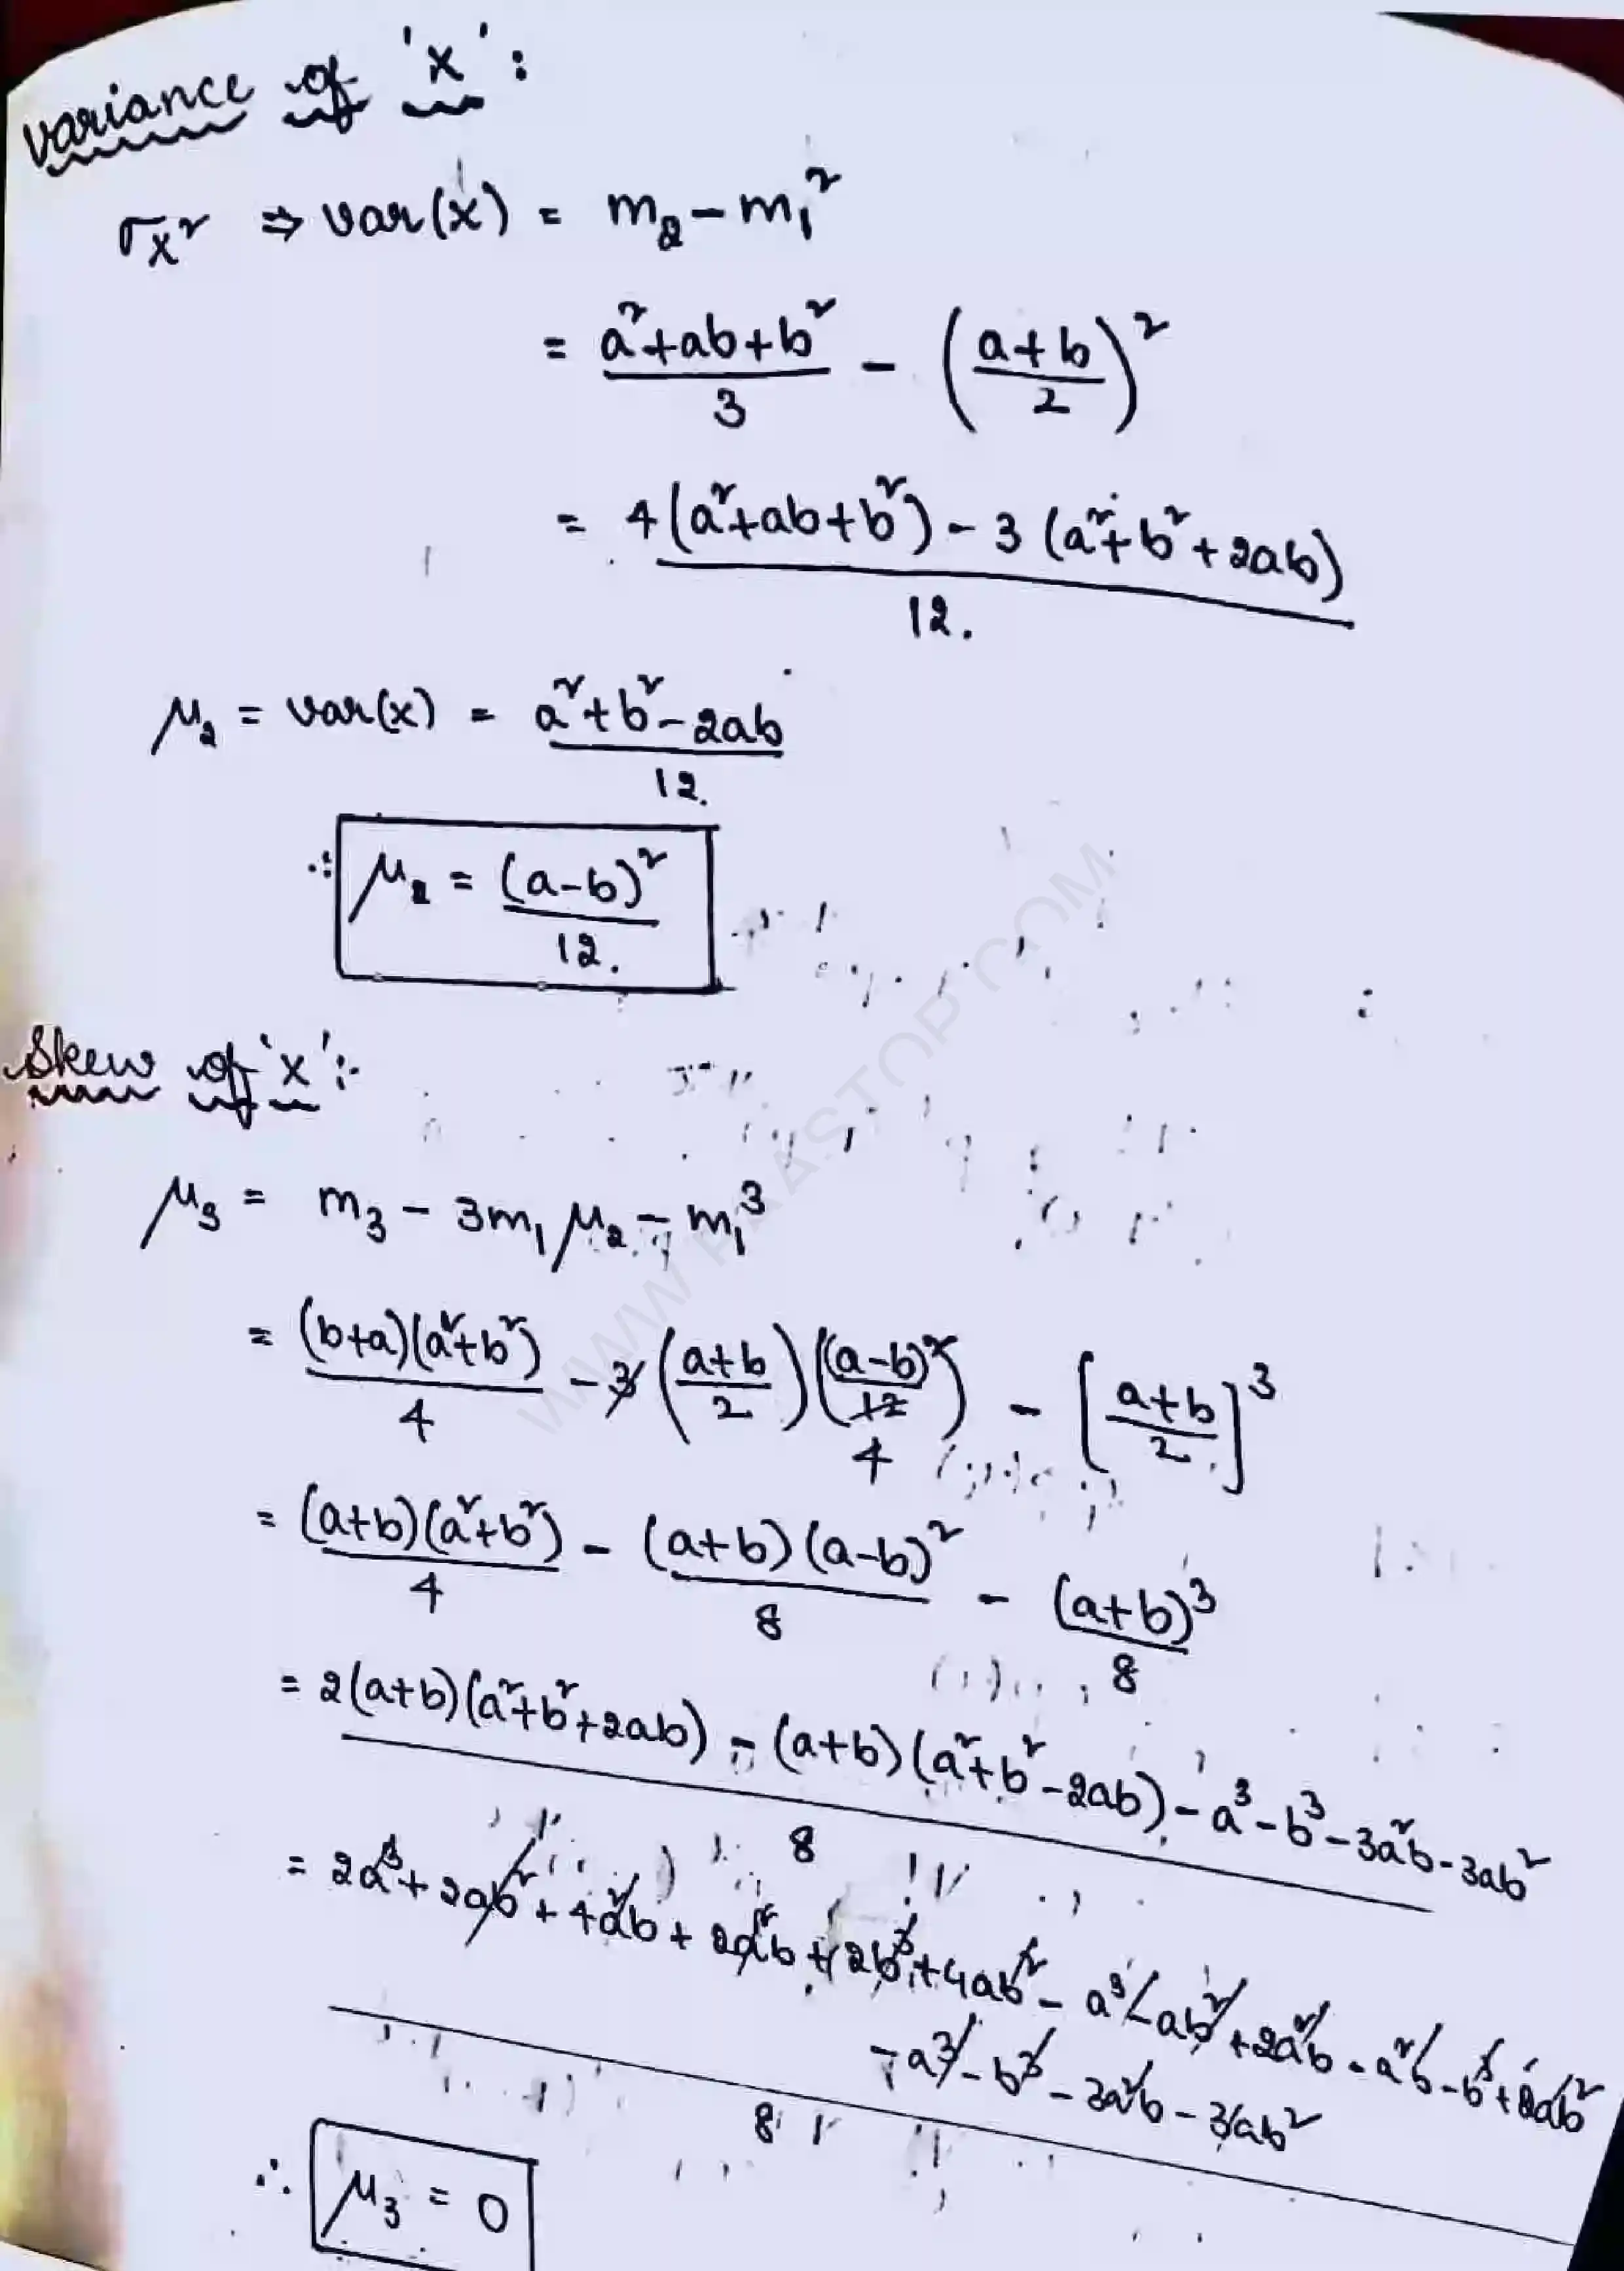 variance of 'x' :
σx² ⇒ var(x) = m₂ - m₁²
= (a²+ab+b²)/3 - ((a+b)/2)²
= (4(a²+ab+b²) - 3(a²+b²+2ab))/12.
μ₂ = var(x) = (a²+b²-2ab)/12.
∴ μ₂ = (a-b)²/12.
Skew of 'x' :-
μ₃ = m₃ - 3m₁μ₂ - m₁³
= (b+a)(a²+b²)/4 - 3((a+b)/2)((a-b)²/12) - [(a+b)/2]³
4
= (a+b)(a²+b²)/4 - (a+b)(a-b)²/8 - (a+b)³/8
= (2(a+b)(a²+b²+2ab) - (a+b)(a²+b²-2ab) - a³-b³-3a²b-3ab²)/8
= 2a³+2ab²+4a²b+2a²b+2b³+4ab²-a³-ab²+2a²b-a²b-b³+2ab²
-a³-b³-3a²b-3ab²
8
∴ μ₃ = 0